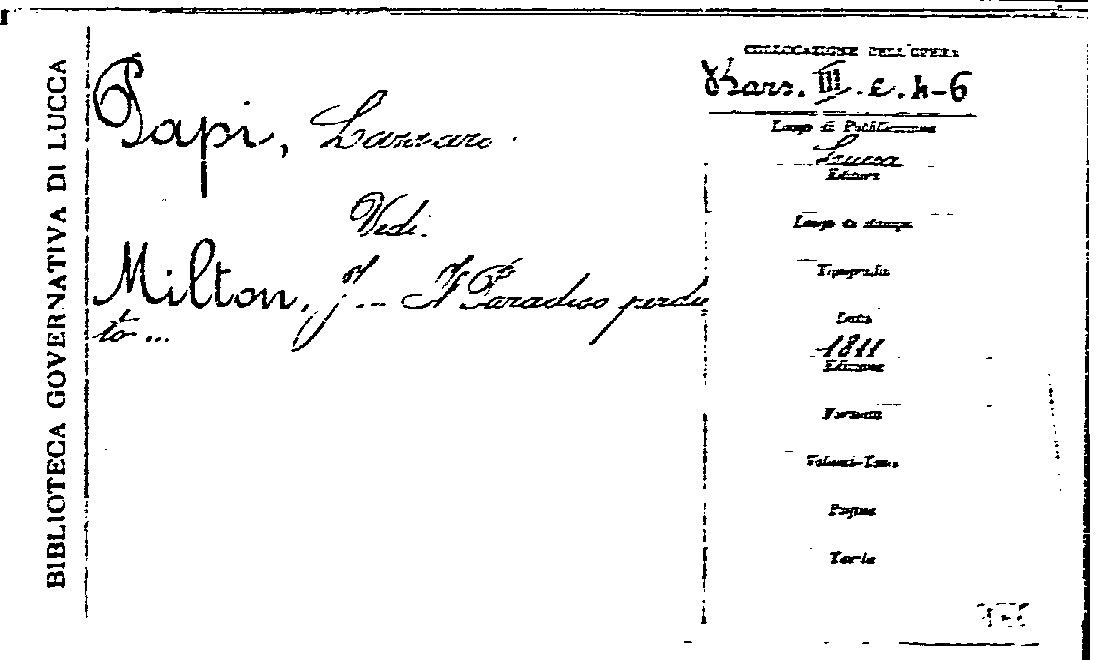 BIBLIOTECA GOVERNATIVA DI LUCCA
Papi, Lazzaro.
Vedi.
Milton, J. - Il Paradiso perdu
to...
COLLOCAZIONE DELL'OPERA
III. c. h-6
Luogo di Pubblicazione
Lucca
Editore
Luogo di stampa
Tipografia
Data
1811
Edizione
Formato
Volumi-Tomi
Pagine
Tavole